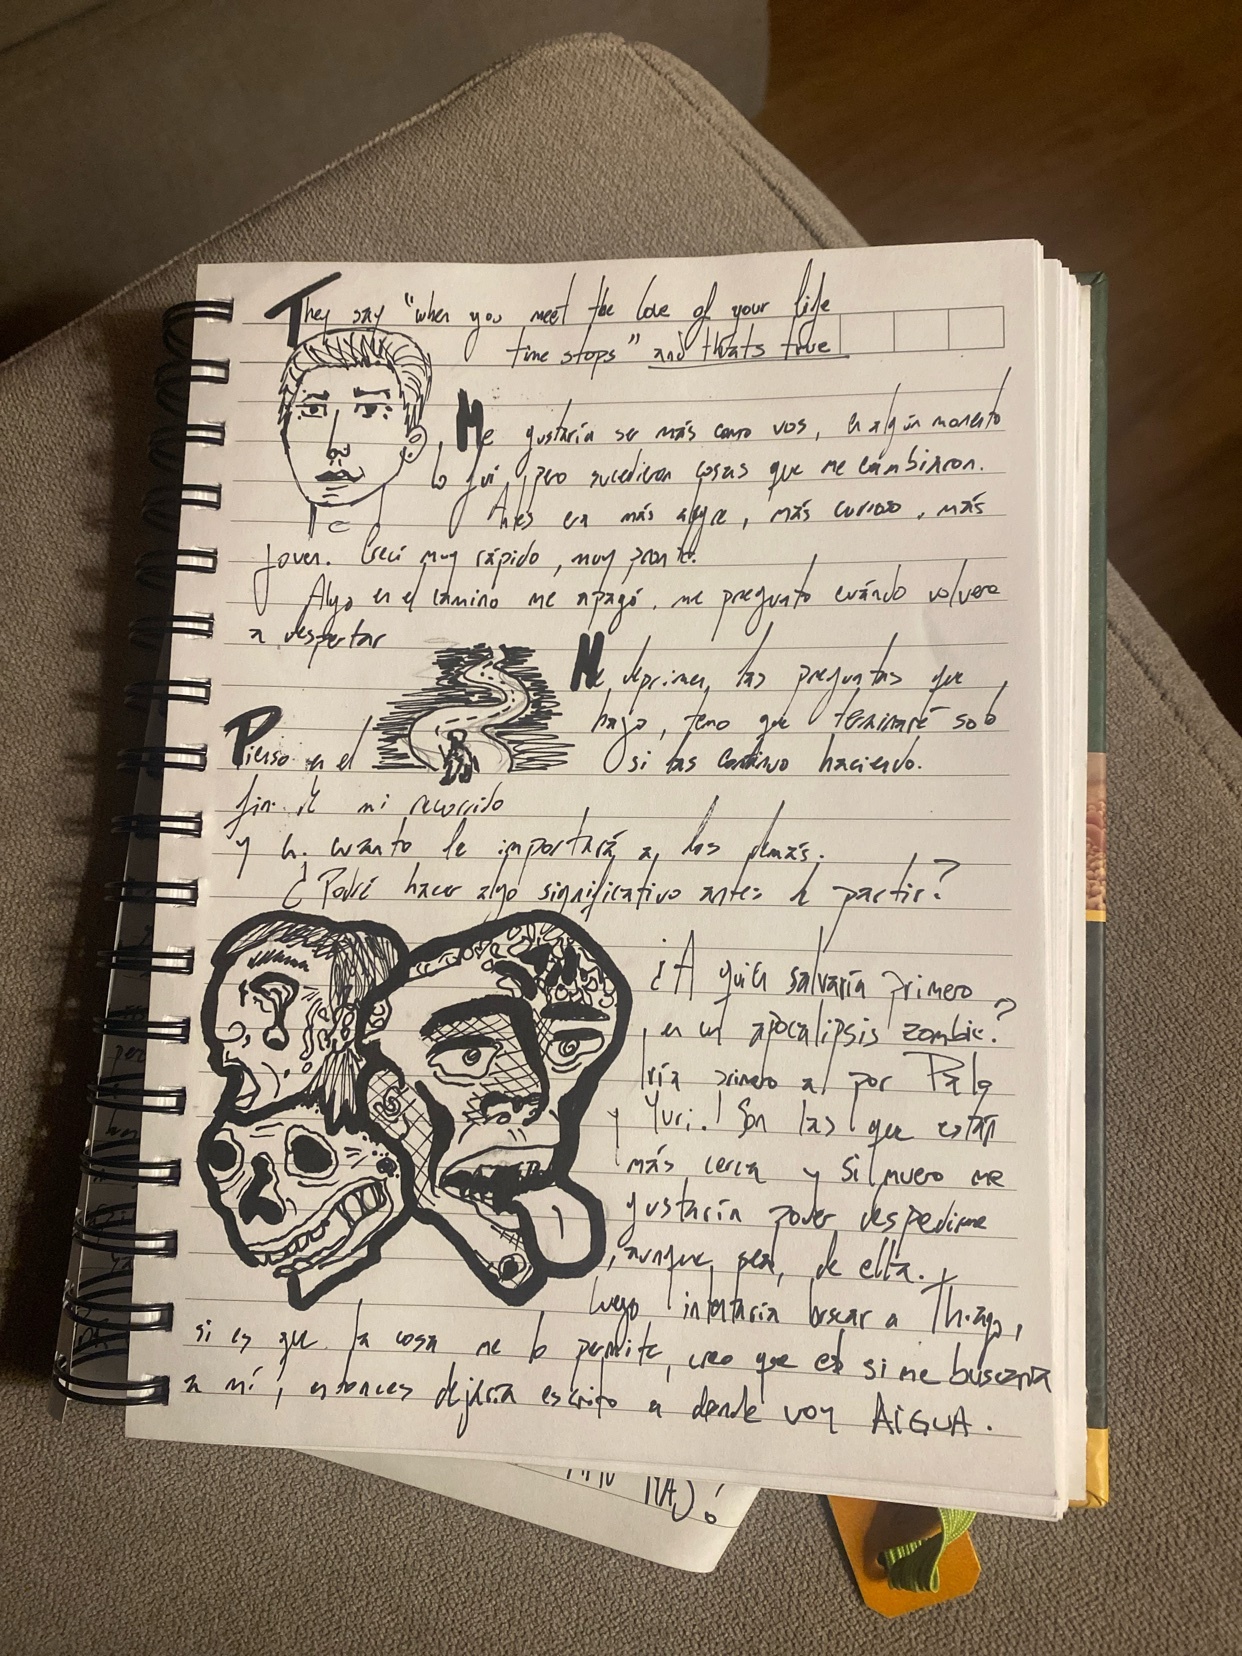 They say "when you meet the love of your life
time stops" and thats true
Me gustaría ser más como vos, en algún momento
lo fui, pero sucedieron cosas que me cambiaron.
Antes era más alegre, más curioso, más
joven. Crecí muy rápido, muy pronto.
Algo en el camino me apagó, me pregunto cuándo volveré
a despertar
Me deprimen las preguntas que
hago, temo que terminaré solo
si las continuo haciendo.
Pienso en el
fin de mi recorrido
y en cuanto le importará a los demás.
¿Podré hacer algo significativo antes de partir?
¿A quién salvaría primero
en un apocalipsis zombie?
Iría primero a por
y Yuri. Son las que están
más cerca y si muero me
gustaría poder despedirme
aunque sea, de ella.
Luego intentaría buscar a Thiago,
si es que la cosa me lo permite, creo que él si me buscaría
a mí, entonces dejaría escrito a donde voy AIGUA.